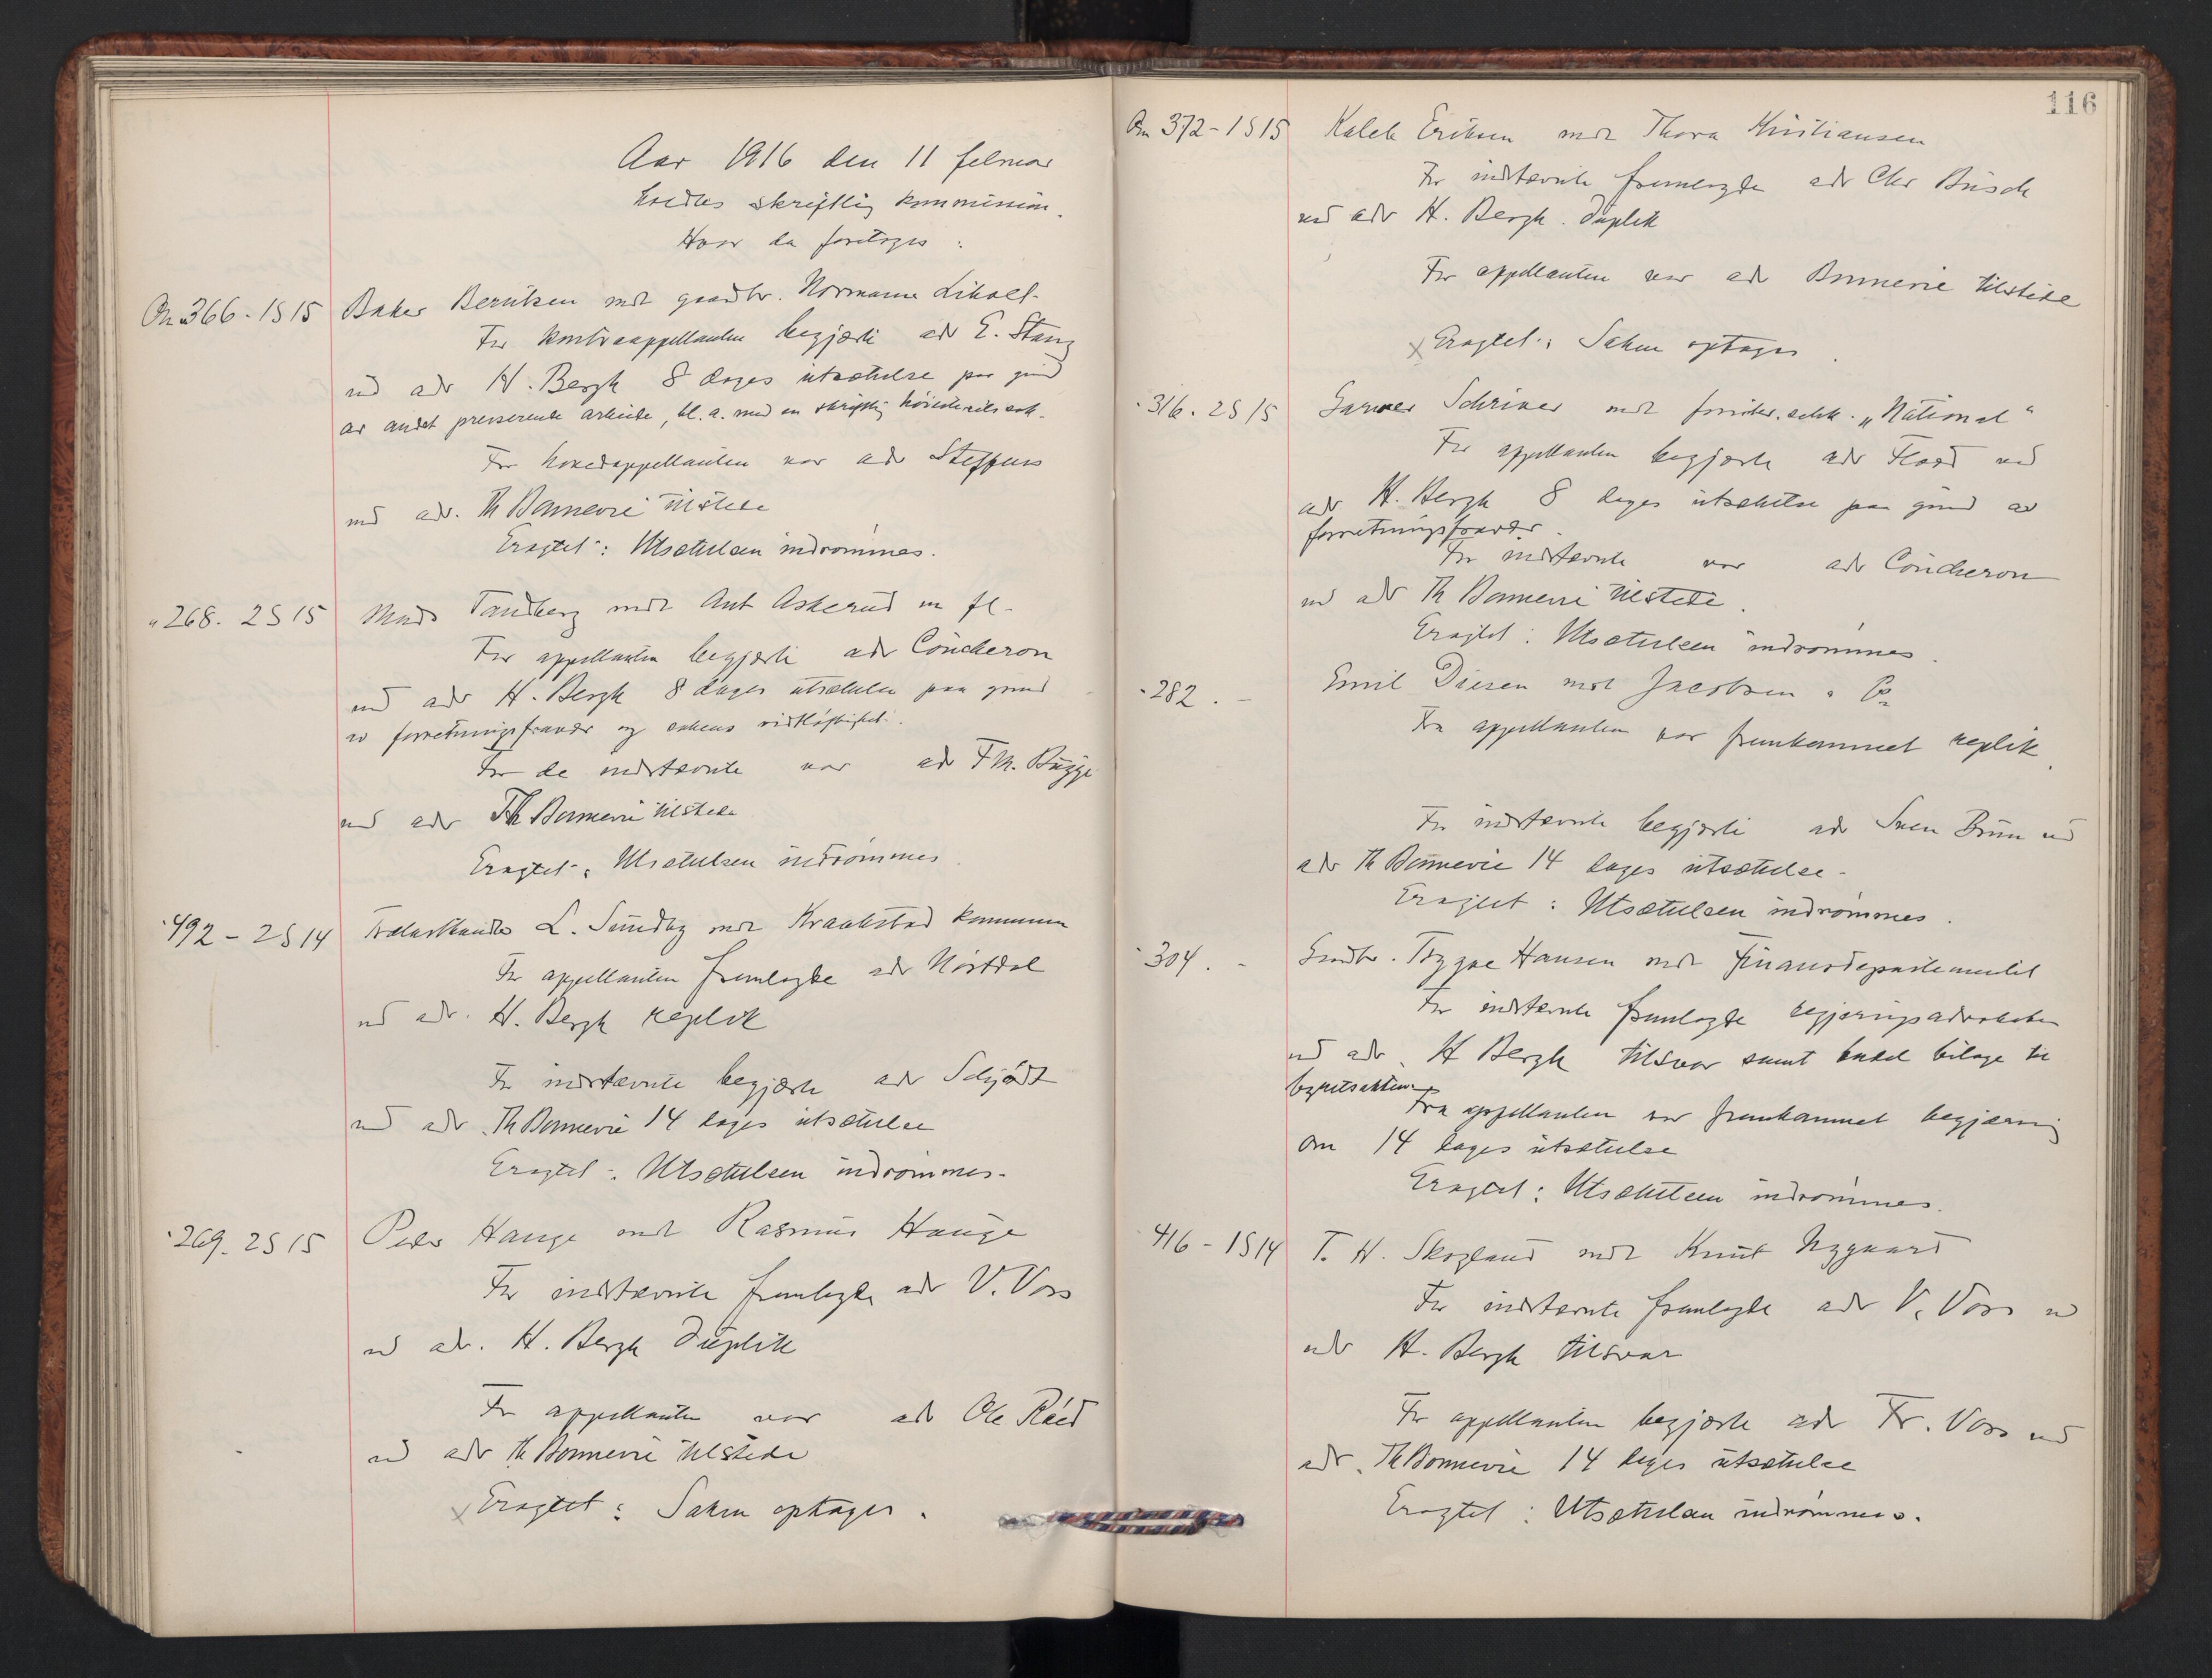 Aar 1916 den 11 februar
holdtes skriftlig kommission.
Hvor da foretoges:
An 366. 1S15 Baker Beruksen mot gaardbr. Normann Likoll.
For kontraappellanten begjærte adv E. Stang
ved adv H. Bergh 8 dages utsættelse paa grund
av andet presserende arbeide, bl. a. med en skriftlig höiesteretssak.
For hovedappellanten var adv Steffens
ved adv. Th Bonnevie tilstede
Eragtet: Utsættelsen indrömmes.
" 268. 2S15 Mads Tandberg mot Ant Askerud m fl.
For appellanten begjærte adv Coucheron
ved adv H. Bergh 8 dages utsættelse paa grund
av forretningsfravær og sakens vidtløftighet.
For de indstevnte var adv Fr. M. Bugge
ved adv Th Bonnevie tilstede
Eragtet: Utsættelsen indrömmes
" 492 - 2S14 Trælasthandler L. Sundby mot Kraakstad kommune
For appellanten fremlagde adv Hörtdal
ved adv. H. Bergh replik
For indstævnte begjærte adv Schjödt
ved adv Th Bonnevie 14 dages utsættelse
Eragtet: Utsættelsen indrömmes.
" 269. 2S15 Peder Hauge mot Rasmus Hauge
For indstævnte fremlagde adv V. Voss
ved adv. H. Bergh duplik
For appellanten var adv Ole Röed
ved adv Th Bonnevie tilstede
x Eragtet: Saken optages.
116
An 372 - 1S15 Kaleb Eriksen mot Thora Kristiansen
For indstævnte fremlagde adv Chr Busch
ved adv H. Bergh. duplik
For appellanten var adv Bonnevie tilstede
x Eragtet: Saken optages.
" 316. 2S15 Garver Schriver mot forsikr. selsk. "National"
For appellanten begjærte adv Flood ved
adv H. Bergh 8 dages utsættelse paa grund av
forretningsfravær.
For indstævnte var adv Coucheron
ved adv Th Bonnevie tilstede.
Eragtet: Utsættelsen indrömmes.
" 282. - Emil Diesen mot Jacobsen & Co
Fra appellanten var fremkommet replik.
For indstævnte begjærte adv Sven Brun ved
adv Th Bonnevie 14 dages utsættelse.
Eragtet: Utsættelsen indrömmes.
" 304. - Gaardbr. Trygve Hansen mot Finansdepartementet
For indstævnte fremlagde regjeringsadvokaten
ved adv. H Bergh tilsvar samt endel bilage til
byretsakten.
Fra appellanten var fremkommet begjæring
om 14 dages utsættelse
Eragtet: Utsættelsen indrömmes.
" 416 - 1S14 T. H. Skogland mot Knut Nygaard
For indstævnte fremlagde adv V. Voss ved
adv H. Bergh tilsvar
For appellanten begjærte adv Fr. Voss ved
adv. Th Bonnevie 14 dages utsættelse
Eragtet: Utsættelsen indrömmes.